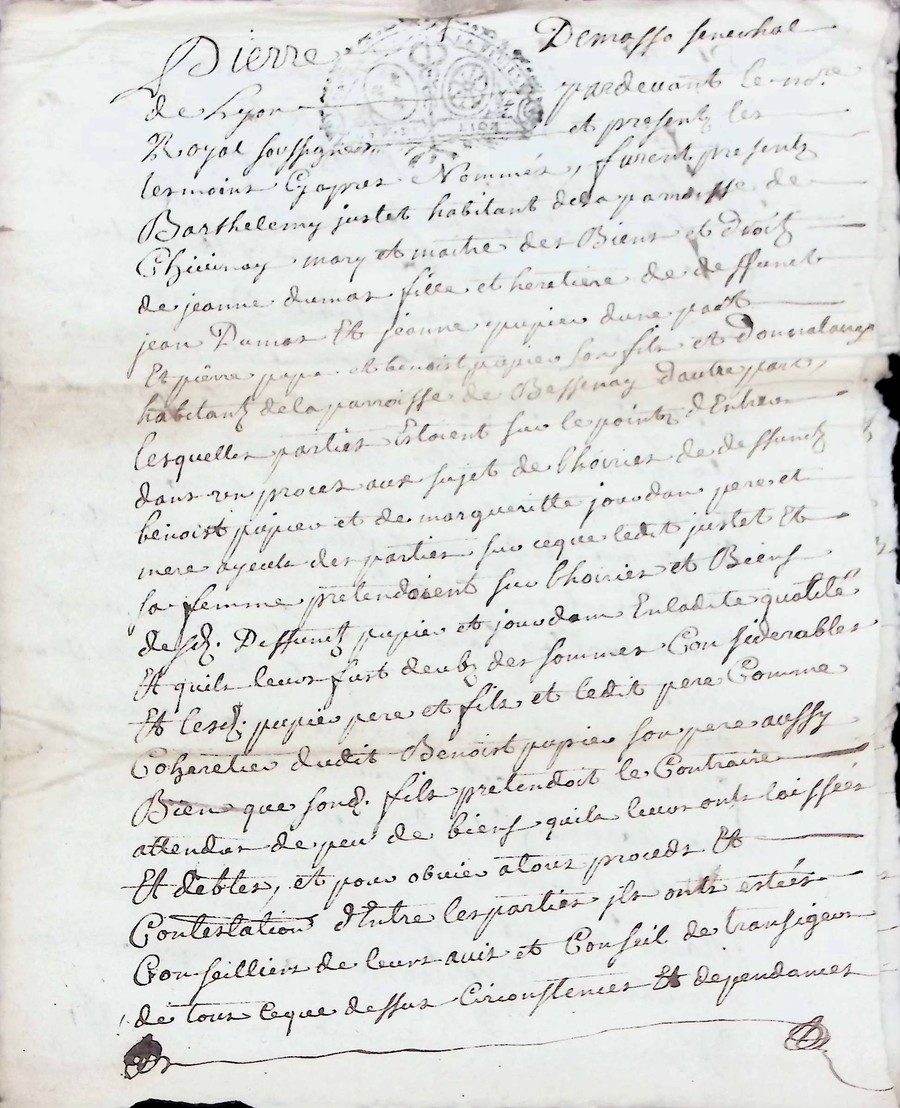 Pierre Demasso senechal
de Lyon pardevant le no.re
Royal soussignes et presentz les
temoins Cyapres Nommés, furent presentz
Barthelemy justet habitant dela paroisse de
mary et maitre des Biens et droitz
de jeanne dumas fille et heretiere de deffunct
jean Dumas Et jeanne papie dune part
Et pierre papie et benoist papie son fils et
habitantz dela parroisse de Bessenay dautre part,
lesquelles parties Estoient sur le pointz d'Entrer
dans un proces aux sujet de lhoiries de deffunctz
benoist papie et de margueritte jourdan pere et
mere ayeuls des parties sur ceque ledit justet Et
sa femme pretendoient sur lhoiries et Biens
desd. Deffunctz papie et jourdan Enladite qualité
Et quils leurs fust deubz des sommes Considerables
Et lesd. papie pere et fils et ledit pere Comme
Coheretier dudit Benoist papie son pere aussy
Bien que sond. fils pretendoit le Contraire
attendas de peu de biens quils leurs onts laissées
Et debtes, et pour obvier a tous proceds Et
Contestation d'Entre les parties jls onts estées
Conseilliers de leurs avis et Conseil de transigeur
de tous ceque dessus Circonstences Et dependances